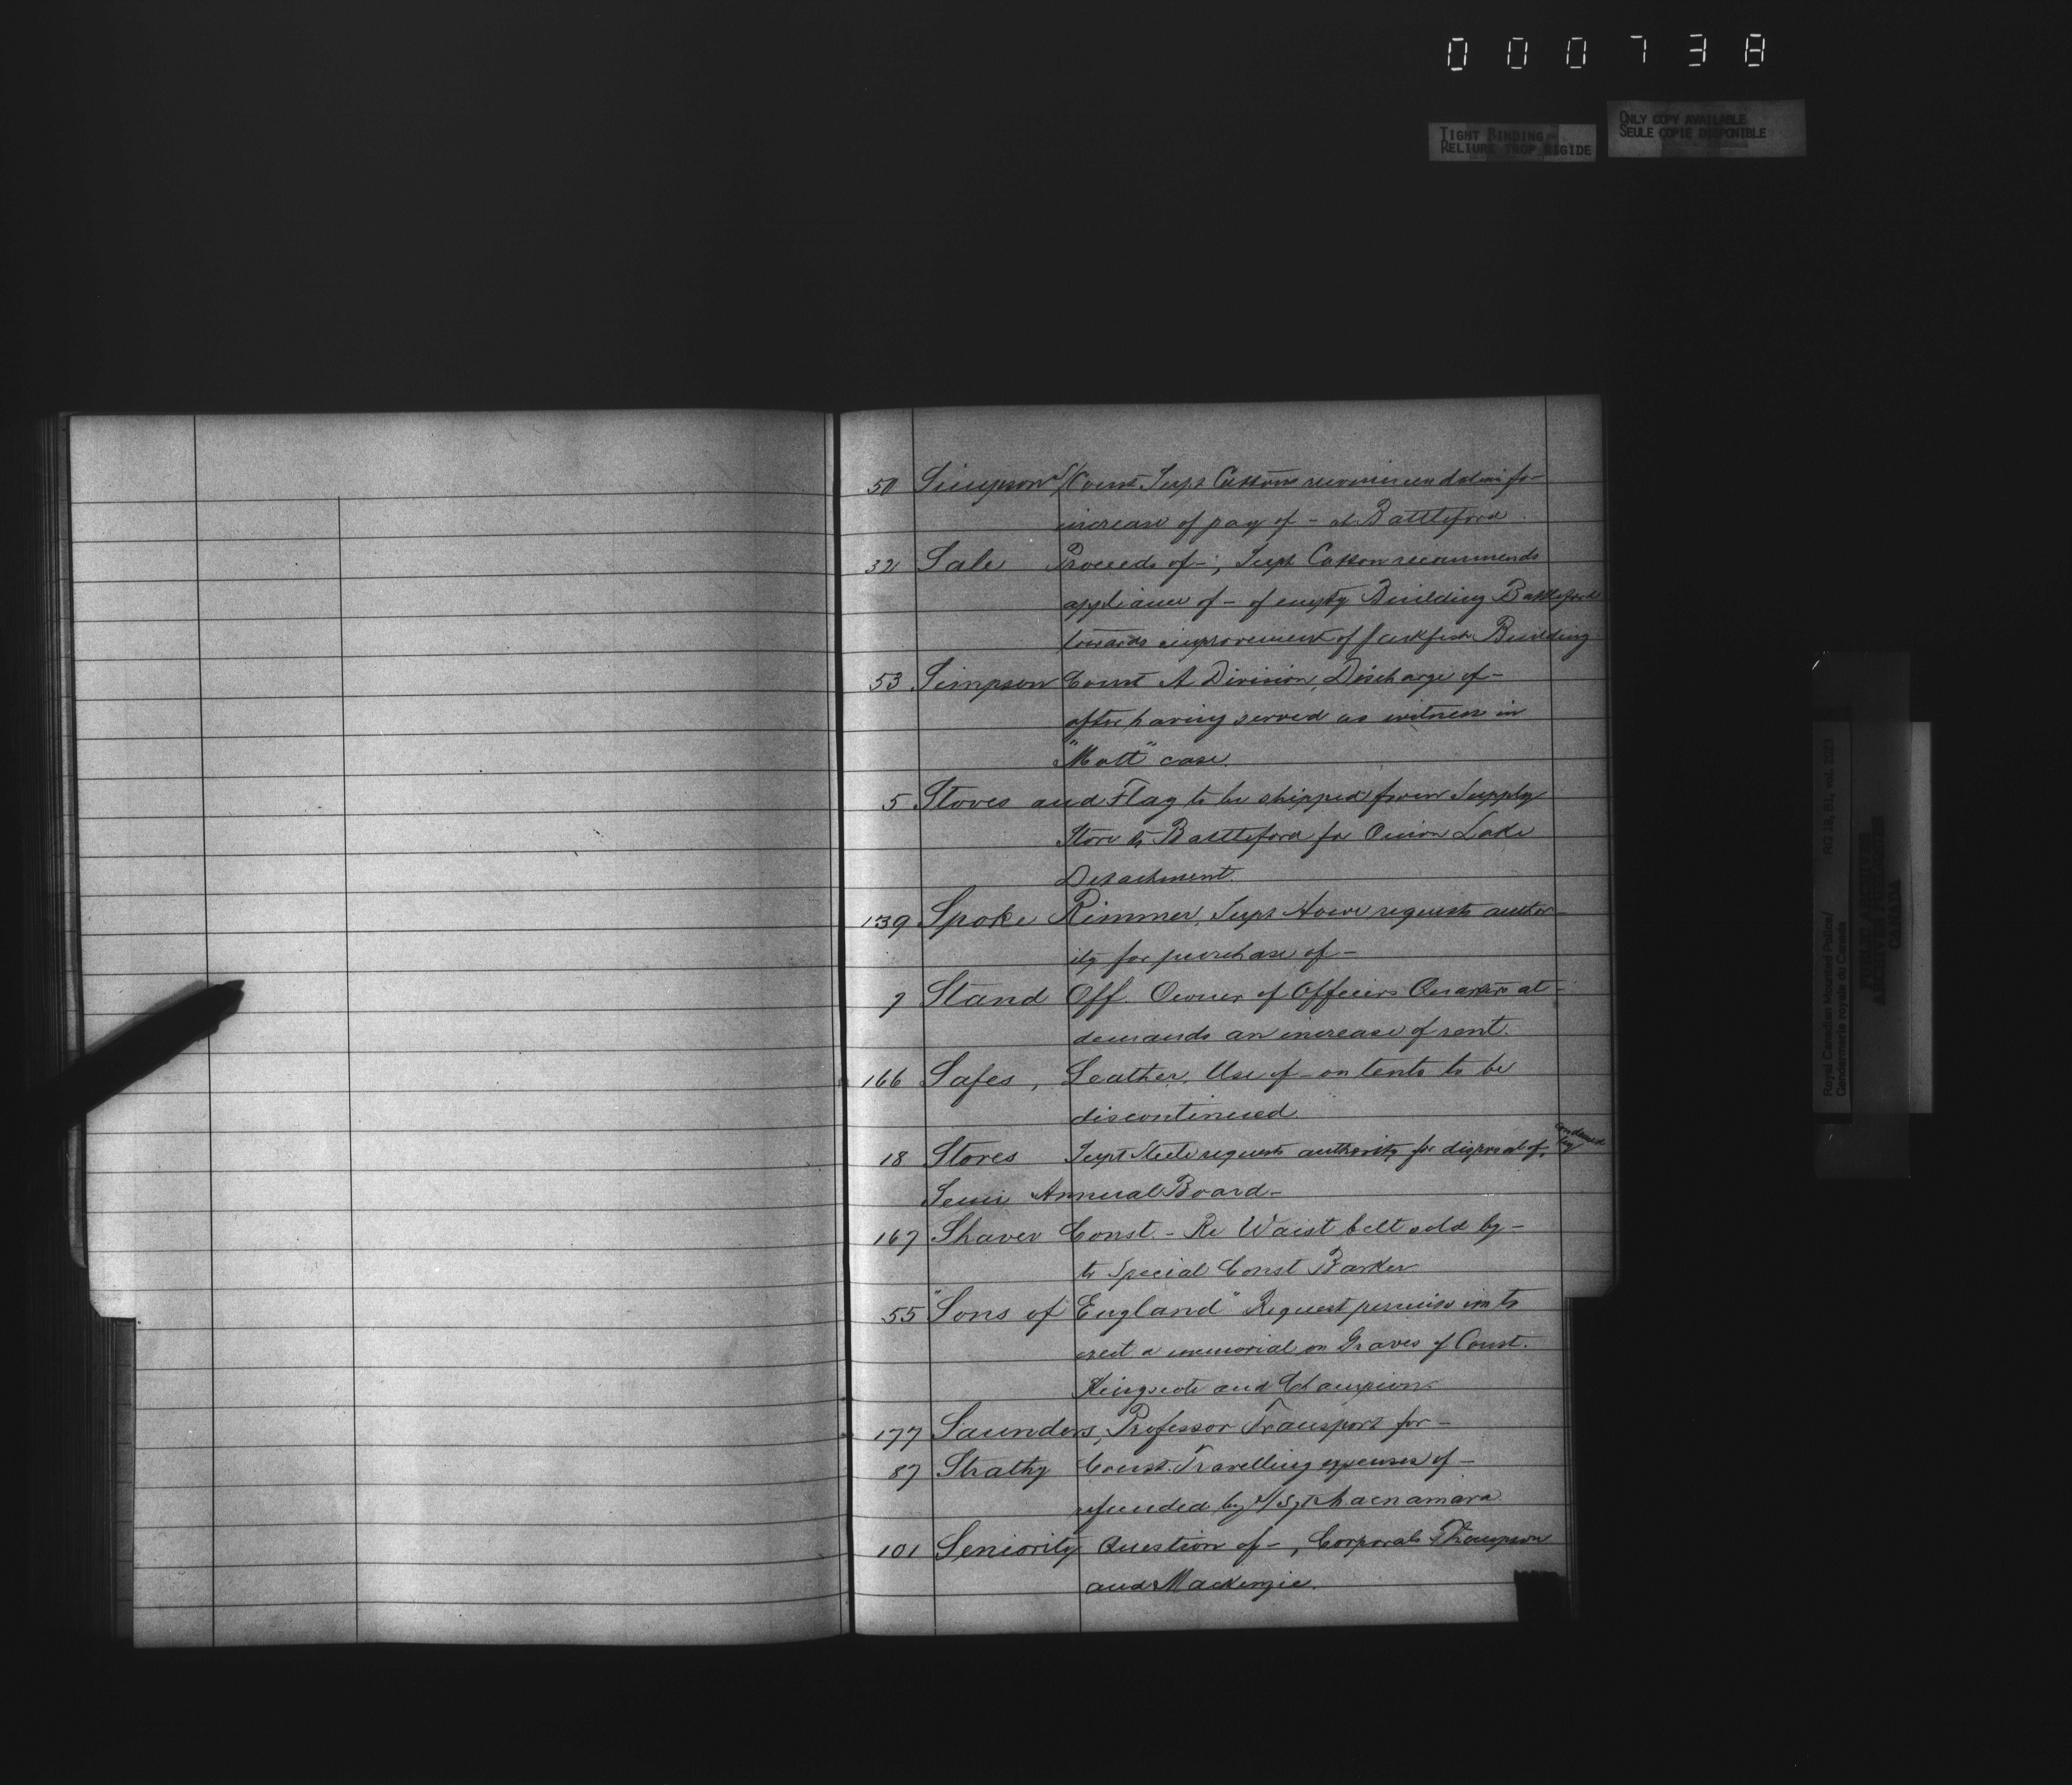 000738
TIGHT BINDING
RELIURE TROP RIGIDE
ONLY COPY AVAILABLE
SEULE COPIE DISPONIBLE
50 Simpson S/Const Supt Cottons recommendation for
increase of pay of - at Battleford.
32 Sale Proceeds of -; Supt Cotton recommends
appliance of - of empty Building Battleford
towards improvement of Jackfish Building.
53 Simpson Const A Division, Discharge of -
after having served as witness in
"Mott" case.
5 Stoves and Flag to be shipped from Supply
Store to Battleford for Onion Lake
Detachment.
139 Spoke Rimmer, Supt Howe requests author-
ity for purchase of -
7 Stand Off. Owner of Officers Quarters at -
demands an increase of rent.
166 Safes, Leather. Use of - on tents to be
discontinued.
18 Stores Supt Steele requests authority for disposal of, condemned by
Semi Annual Board -
167 Shaver Const. - Re Waist belt sold by -
to Special Const Barker
55 "Sons of England" Request permission to
erect a memorial on Graves of Const.
and Champion.
177 Saunders, Professor Transport for -
87 Strathy Const. Travelling expenses of -
refunded by S/Sgt Macnamara
101 Seniority Question of -, Corporals Thompson
and Mackenzie.
Royal Canadian Mounted Police/
Gendarmerie royale du Canada
RG 18, B1, vol. 2023
PUBLIC ARCHIVES
ARCHIVES PUBLIQUES
CANADA